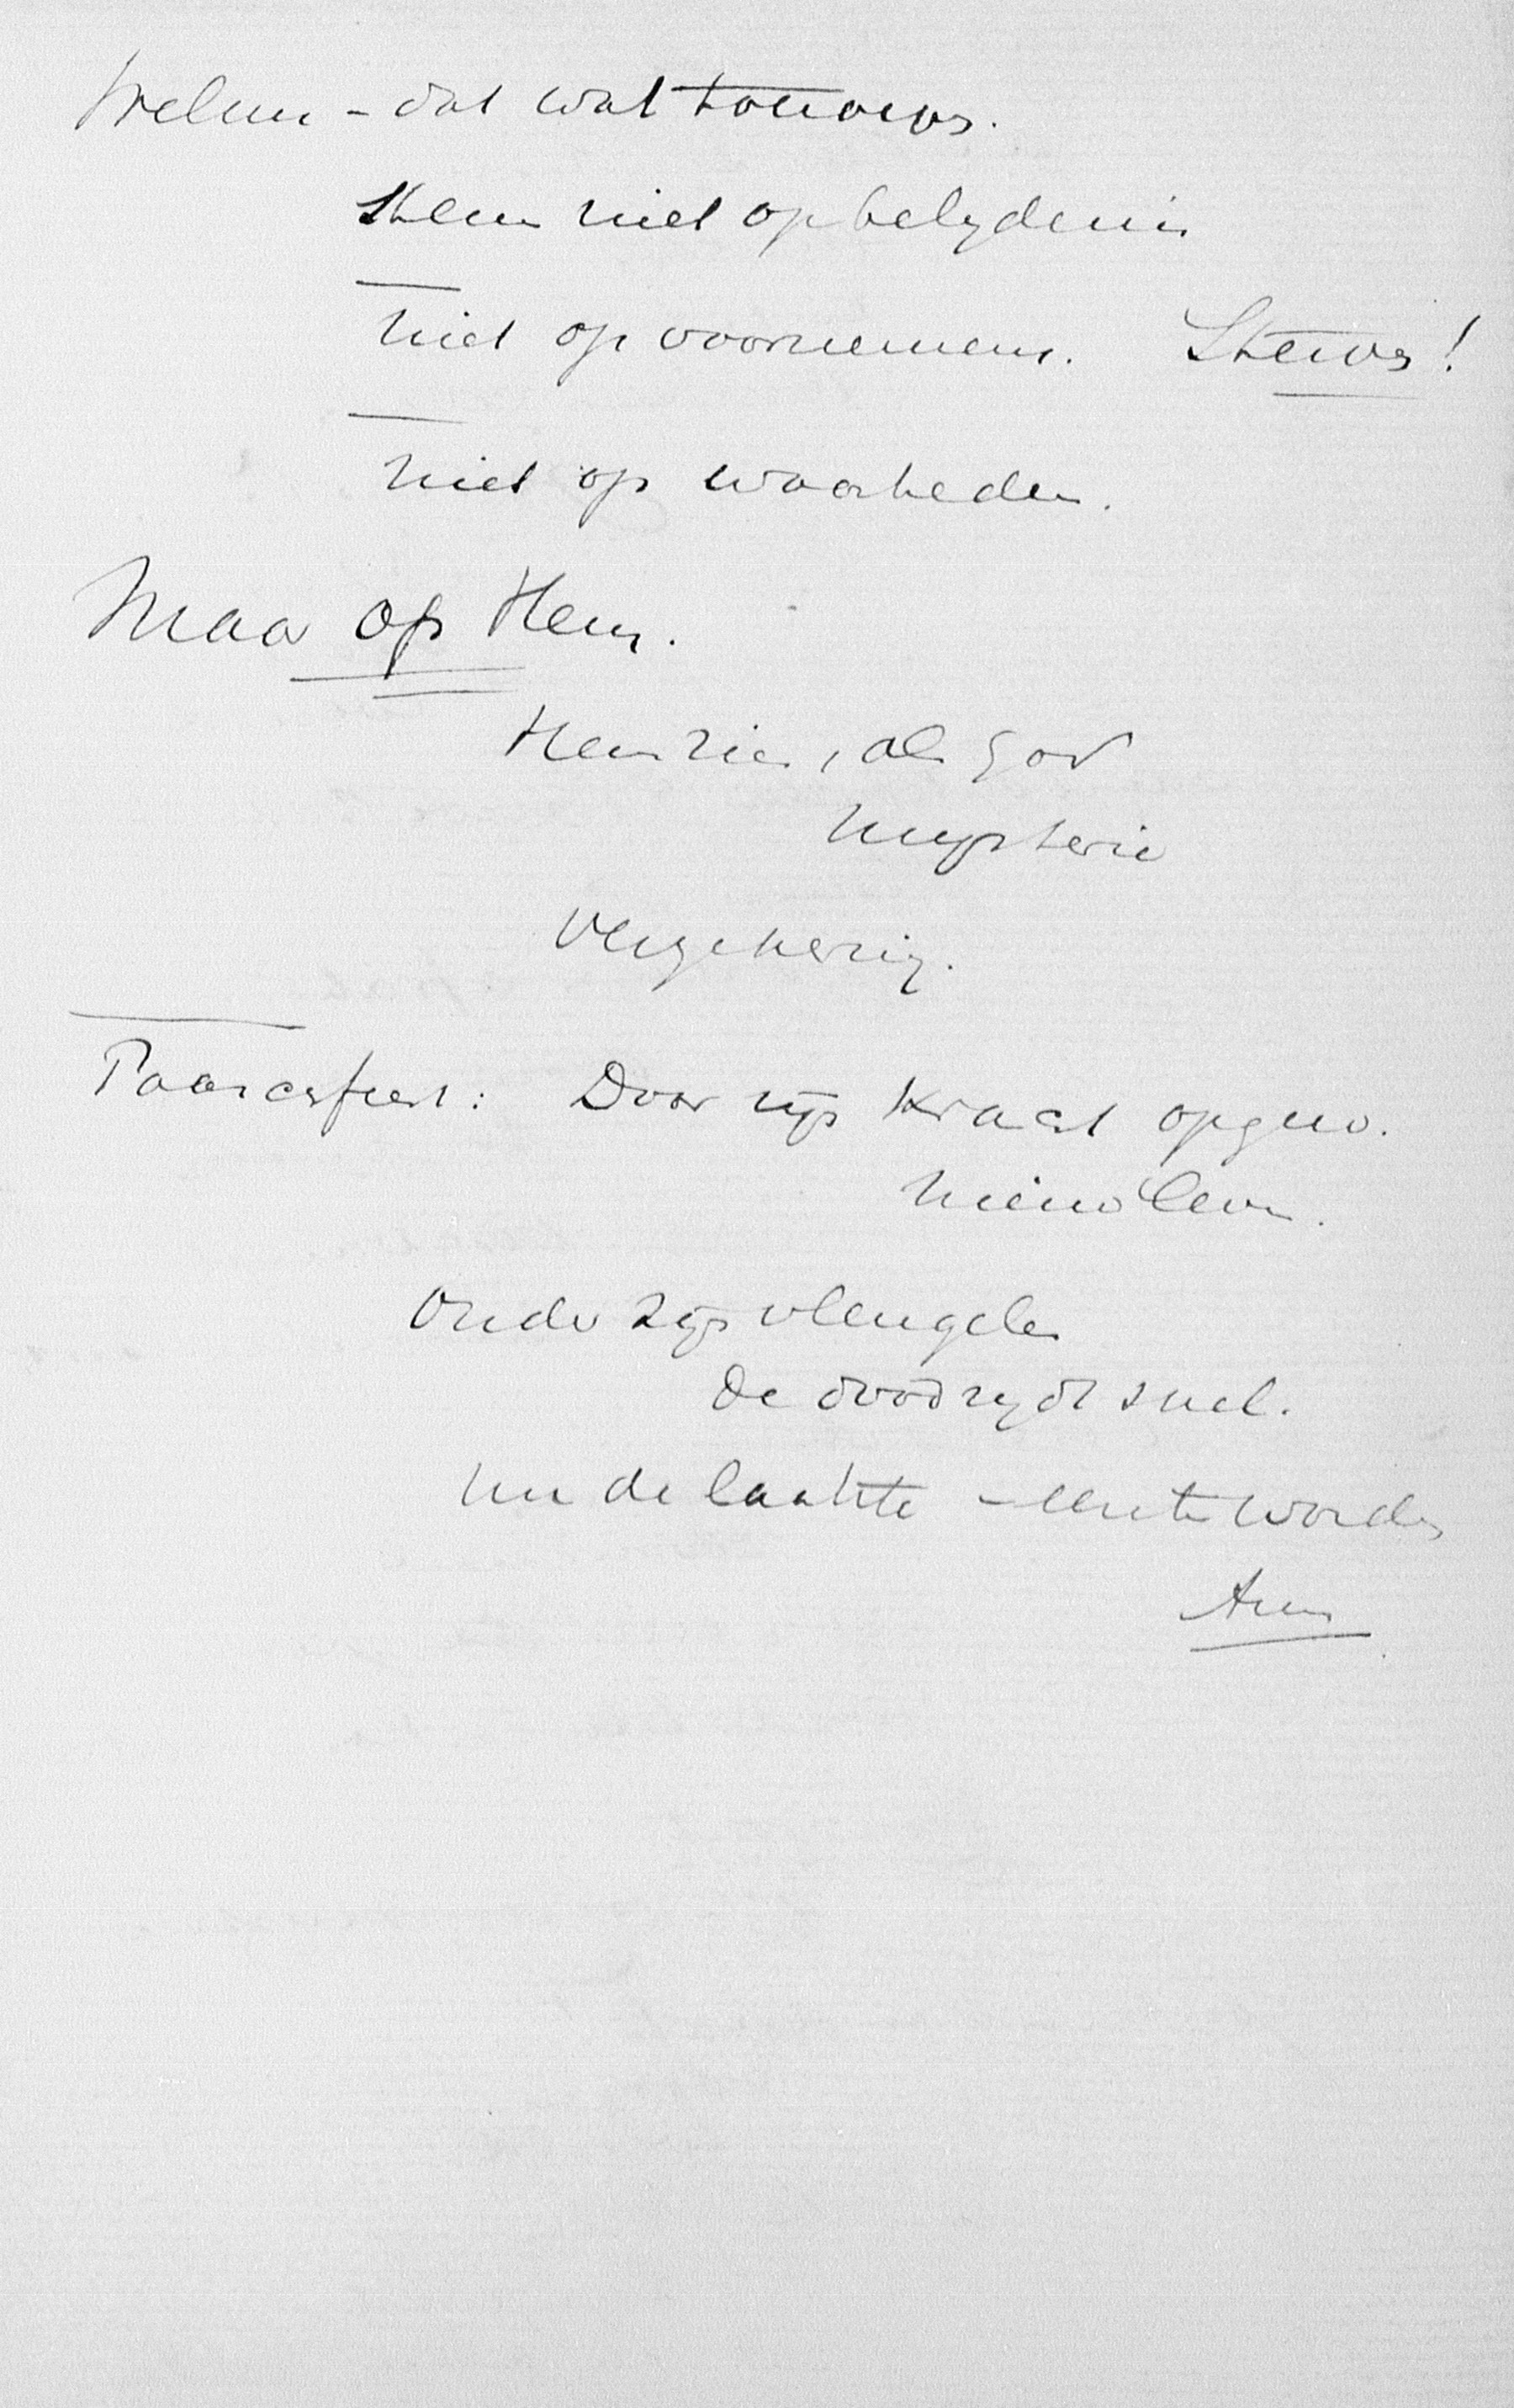 dat wat
Steun niet op belydenis
niet op voornemens. Steun!
niet op waarheden.
Maar op Hem.
Hem zien, als God
Mysterie
Paaschfeest: Door zijn kracht opgew.
Nieuw leven.
Onder zijn vleugelen
De dood rydt snel.
nu de laatste - eerste worden
Amen